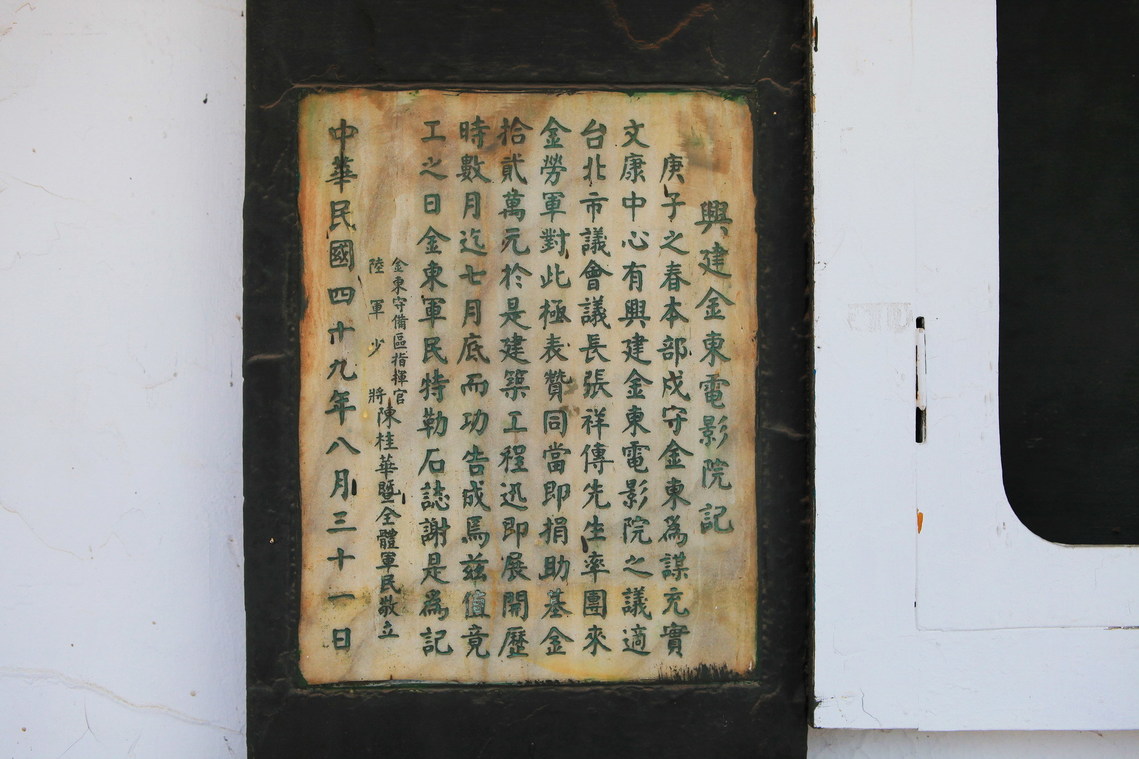 興建金東電影院記
庚子之春本部戍守金東為謀充實
文康中心有興建金東電影院之議適
台北市議會議長張祥傳先生率團來
金勞軍對此極表贊同當即捐助基金
拾貳萬元於是建築工程迅即展開歷
時數月迄七月底而功告成焉茲值竟
工之日金東軍民特勒石誌謝是為記
金東守備區指揮官
陸軍少將陳桂華暨全體軍民敬立
中華民國四十九年八月三十一日